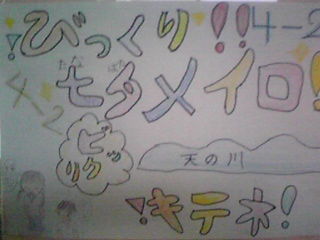 びっくり!!4-2
たなばた
七夕メイロ!
4-2
ビックリ
天の川
キテネ!